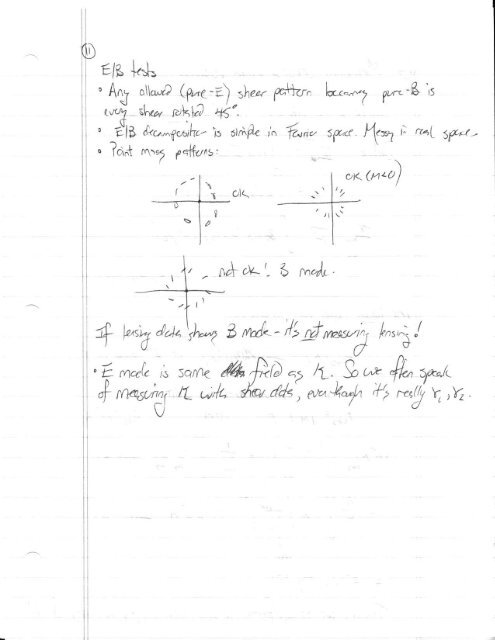 11
E/B tests
• Any allowed (pure-E) shear pattern becomes pure-B is
every shear rotated 45°.
• E/B decomposition is simple in Fourier space. Messy in real space.
• Point mass patterns:
OK
OK (M<0)
not OK! B mode.
If lensing data shows B mode - it's not measuring lensing!
• E mode is same field as κ. So we often speak
of measuring κ with shear data, even though it's really γ1, γ2.